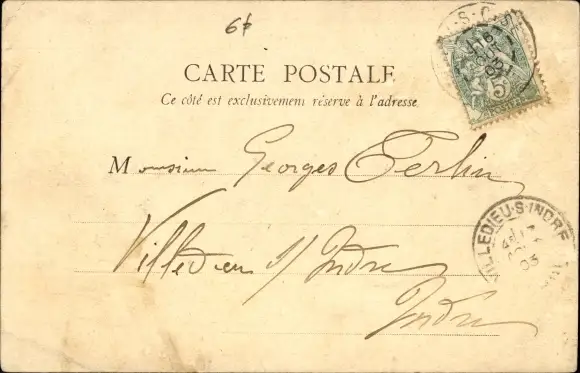 6f
CARTE POSTALE
Ce côté est exclusivement réservé à l'adresse
Monsieur Georges Terlin
Villedieu s/ Indre
Indre
5
VILLEDIEU-S-INDRE
03